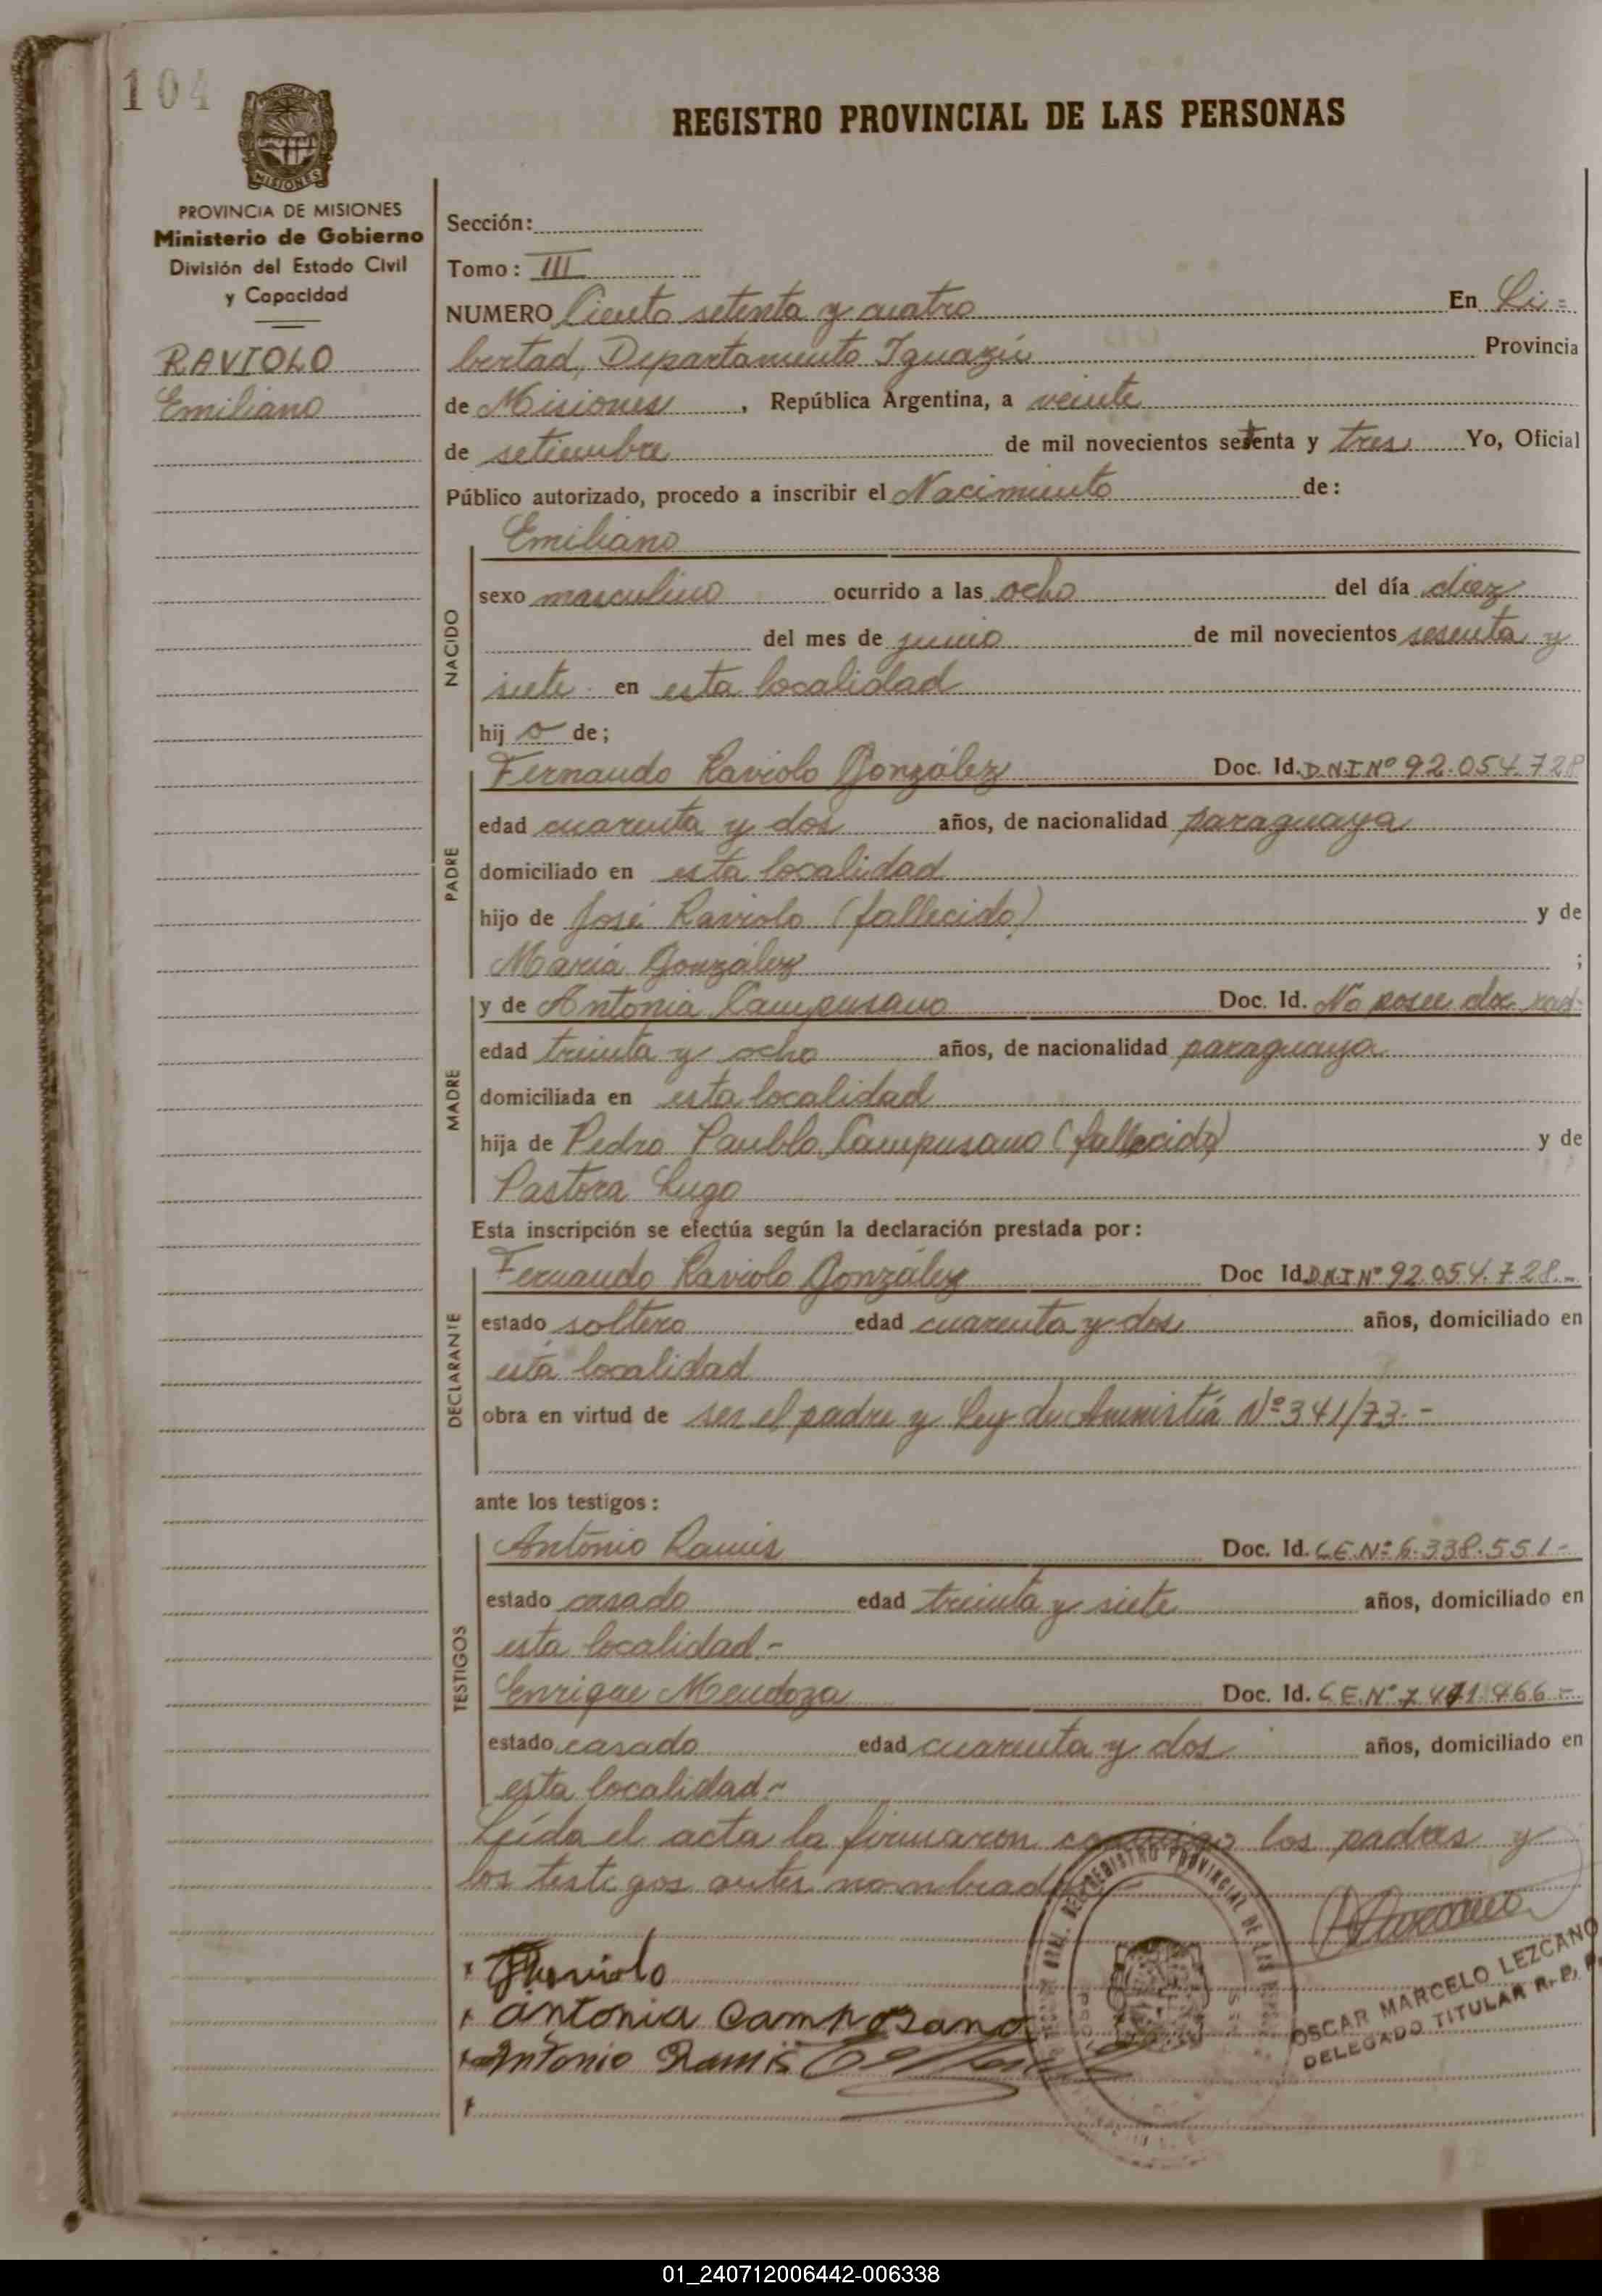 104
REGISTRO PROVINCIAL DE LAS PERSONAS
PROVINCIA DE MISIONES
Ministerio de Gobierno
División del Estado Civil
y Capacidad
RAVIOLO
Emiliano
Sección:
Tomo: III
NUMERO Ciento setenta y cuatro En Li=
bertad, Departamento Iguazú Provincia
de Misiones, República Argentina, a veinte
de setiembre de mil novecientos setenta y tres Yo, Oficial
Público autorizado, procedo a inscribir el Nacimiento de:
NACIDO
Emiliano
sexo masculino ocurrido a las ocho del día diez
del mes de junio de mil novecientos sesenta y
siete en esta localidad
hijo de;
PADRE
Fernando Raviolo González Doc. Id. D.N.I Nº 92.054.728
edad cuarenta y dos años, de nacionalidad paraguaya
domiciliado en esta localidad
hijo de José Raviolo (fallecido) y de
María González ;
MADRE
y de Antonia Campusano Doc. Id. No posee doc. rad-
edad treinta y ocho años, de nacionalidad paraguaya
domiciliada en esta localidad
hija de Pedro Paublo Campusano (fallecido) y de
Pastora Lugo
Esta inscripción se efectúa según la declaración prestada por:
DECLARANTE
Fernando Raviolo González Doc Id. D.N.I Nº 92.054.728.-
estado soltero edad cuarenta y dos años, domiciliado en
esta localidad
obra en virtud de ser el padre y Ley de Amnistía Nº 341/73.-
ante los testigos:
TESTIGOS
Antonio Ramis Doc. Id. C.E.Nº 6.338.551-
estado casado edad treinta y siete años, domiciliado en
esta localidad.-
Enrique Mendoza Doc. Id. C.E.Nº 7.471.466-
estado casado edad cuarenta y dos años, domiciliado en
esta localidad.-
Leída el acta la firmaron conmigo los padres y
los testigos antes nombrados
FRaviolo
antonia Camposano
Antonio Ramis
REGISTRO PROVINCIAL DE LAS
OSCAR MARCELO LEZCANO
DELEGADO TITULAR R. P. P.
01_240712006442-006338